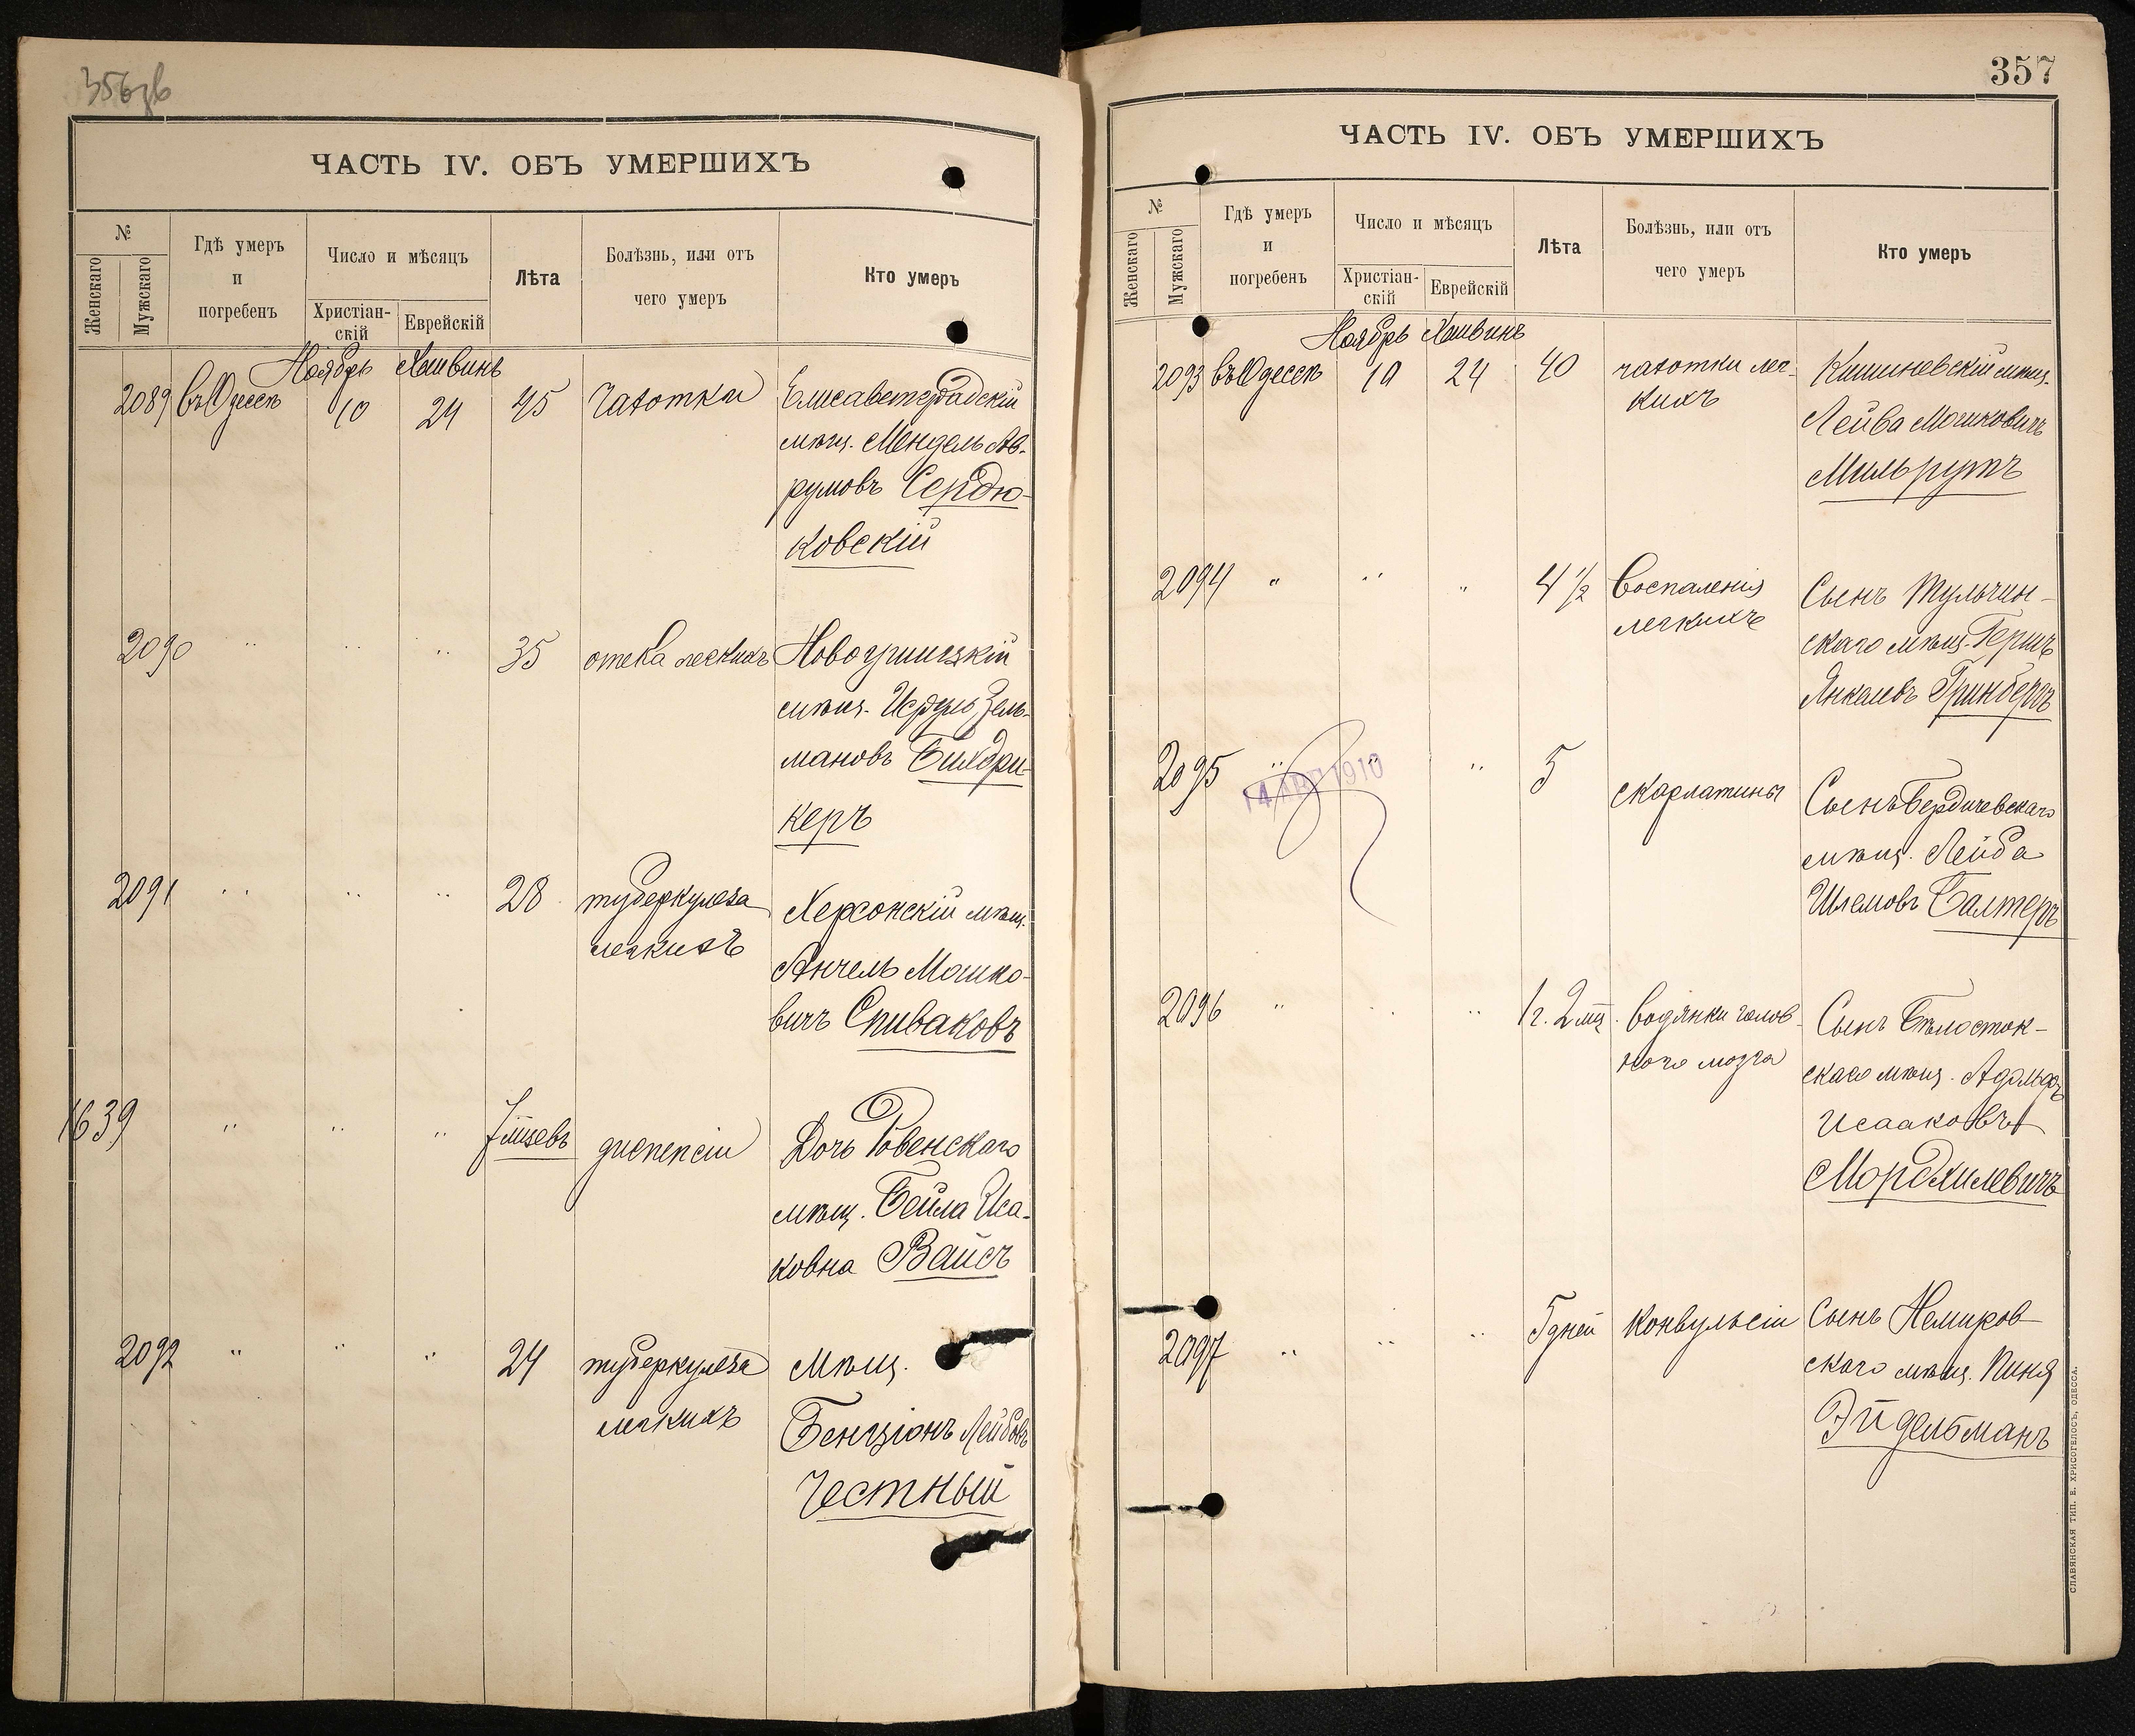 356зв
ЧАСТЬ IV. ОБЪ УМЕРШИХЪ
№
Женскаго
Мужскаго
Гдѣ умеръ
и
погребенъ
Число и мѣсяцъ
Христіан-
скій
Еврейскій
Лѣта
Болѣзнь, или отъ
чего умеръ
Кто умеръ
Ноябрь Хешвинъ
2089 въ Одессѣ 10 24 45 Чахотки Елисаветградскій
мѣщ. Мендель Ав-
румовъ Сердю-
ковскій
2090 " " " 35 отека легкихъ Новоушицкій
мѣщ. Зель-
мановъ
керъ
2091 " " " 28 туберкулеза Херсонскій мѣщ.
легкихъ
Анчель Мошко-
вичъ Спиваковъ
1639 " " " 7 мѣсяцевъ диспепсіи Дочь Ровенскаго
мѣщ. Бейла Иса-
ковна Вайсъ
2092 " " " 24 туберкулеза мѣщ.
легкихъ
Бенціонъ Лейбовъ
Честный
357
ЧАСТЬ IV. ОБЪ УМЕРШИХЪ
№
Женскаго
Мужскаго
Гдѣ умеръ
и
погребенъ
Число и мѣсяцъ
Христіан-
скій
Еврейскій
Лѣта
Болѣзнь, или отъ
чего умеръ
Кто умеръ
Ноябрь Хешвинъ
2093 въ Одессѣ 10 24 40 чахотки лег- Кишиневскій мѣщ.
кихъ
Лейба Мошковичъ
Мильрутъ
2094 " " " 4 1/2 Воспаленія Сынъ Тульчин-
легкихъ
скаго мѣщ. Гершъ
Янкелевъ Гринбергъ
2095 " " " 5 скарлатины Сынъ Бердичевскаго
14 1910
мѣщ. Лейба
Шлемовъ Балтеръ
2096 " " " 1 г. 2 мѣс. водянки голов- Сынъ Бѣлосток-
ного мозга
скаго мѣщ. Адольфъ
Исааковъ
Мордхилевичъ
2097 " " " 5 дней Конвульсіи Сынъ Немиров-
скаго мѣщ. Пиня
Эйдельманъ
СЛАВЯНСКАЯ ТИП. Е. ХРИСОГЕЛОСЪ, ОДЕССА.